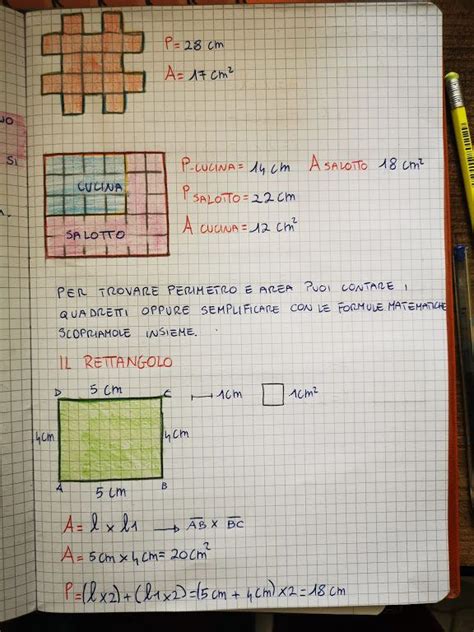 P = 28 cm
A = 17 cm²
NO
SI
CUCINA
SALOTTO
P CUCINA = 14 cm A SALOTTO 18 cm²
P SALOTTO = 22 cm
A CUCINA = 12 cm²
PER TROVARE PERIMETRO E AREA PUOI CONTARE I
QUADRETTI OPPURE SEMPLIFICARE CON LE FORMULE MATEMATICHE
SCOPRIAMOLE INSIEME.
IL RETTANGOLO
D 5 cm C 1cm 1cm²
4cm 4cm
A 5 cm B
A = l x l1 → AB x BC
A = 5cm x 4cm = 20cm²
P = (l x 2) + (l1 x 2) = (5cm + 4cm) x 2 = 18 cm